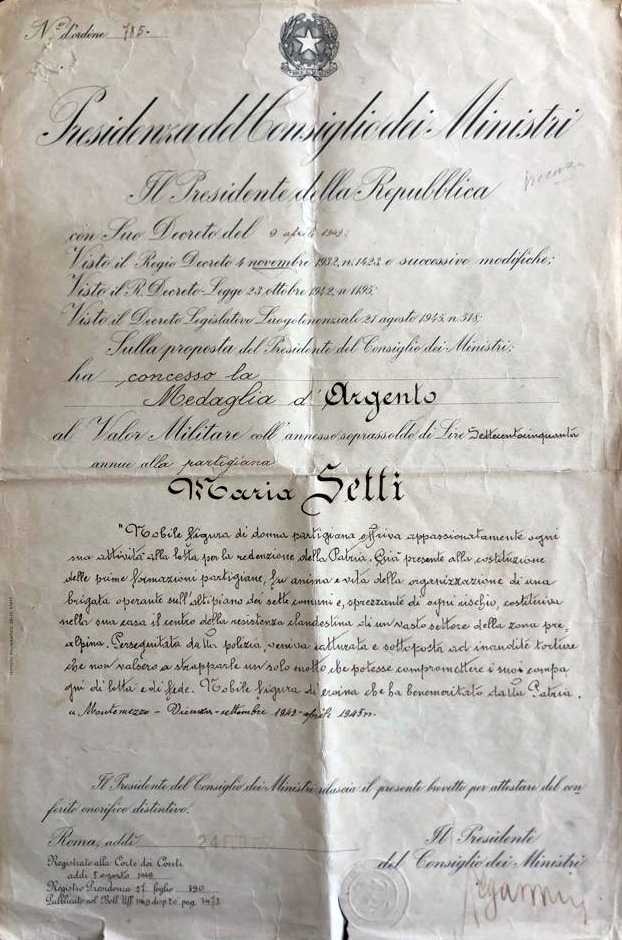 N.º d'ordine 785.
Presidenza del Consiglio dei Ministri
Il Presidente della Repubblica
con Suo Decreto del 9 aprile 1949;
Visto il Regio Decreto 4 novembre 1932, n. 1423 e successive modifiche;
Visto il R. Decreto-Legge 23 ottobre 1942, n. 1195;
Visto il Decreto Legislativo Luogotenenziale 21 agosto 1945, n. 518;
Sulla proposta del Presidente del Consiglio dei Ministri;
ha concesso la
Medaglia d'Argento
al Valor Militare coll'annesso soprassoldo di Lire Settecentocinquanta
annue alla partigiana
Maria Setti
"Nobile figura di donna partigiana offriva appassionatamente ogni
sua attività alla lotta per la redenzione della Patria. Già presente alla costituzione
delle prime formazioni partigiane, fu anima e vita della organizzazione di una
brigata operante sull'altipiano dei sette comuni e, sprezzante di ogni rischio, costituiva
nella sua casa il centro della resistenza clandestina di un vasto settore della zona pre,
alpina. Perseguitata dalla polizia, veniva catturata e sottoposta ad inaudite torture
che non valsero a strapparle un solo motto che potesse compromettere i suoi compa
gni di lotta e di fede. Nobile figura di eroina che ha benemeritato dalla Patria.
a Montemezzo - Vicenza - settembre 1943 - aprile 1945".
Il Presidente del Consiglio dei Ministri, rilascia il presente brevetto per attestare del con,
ferito onorifico distintivo.
Roma, addì 24
Registrato alla Corte dei Conti
addì 5 agosto 1949
Registro Presidenza 27 foglio 390
Pubblicato nel Boll. Uff. 1949 disp. 20ª pag. 3473
Il Presidente
del Consiglio dei Ministri